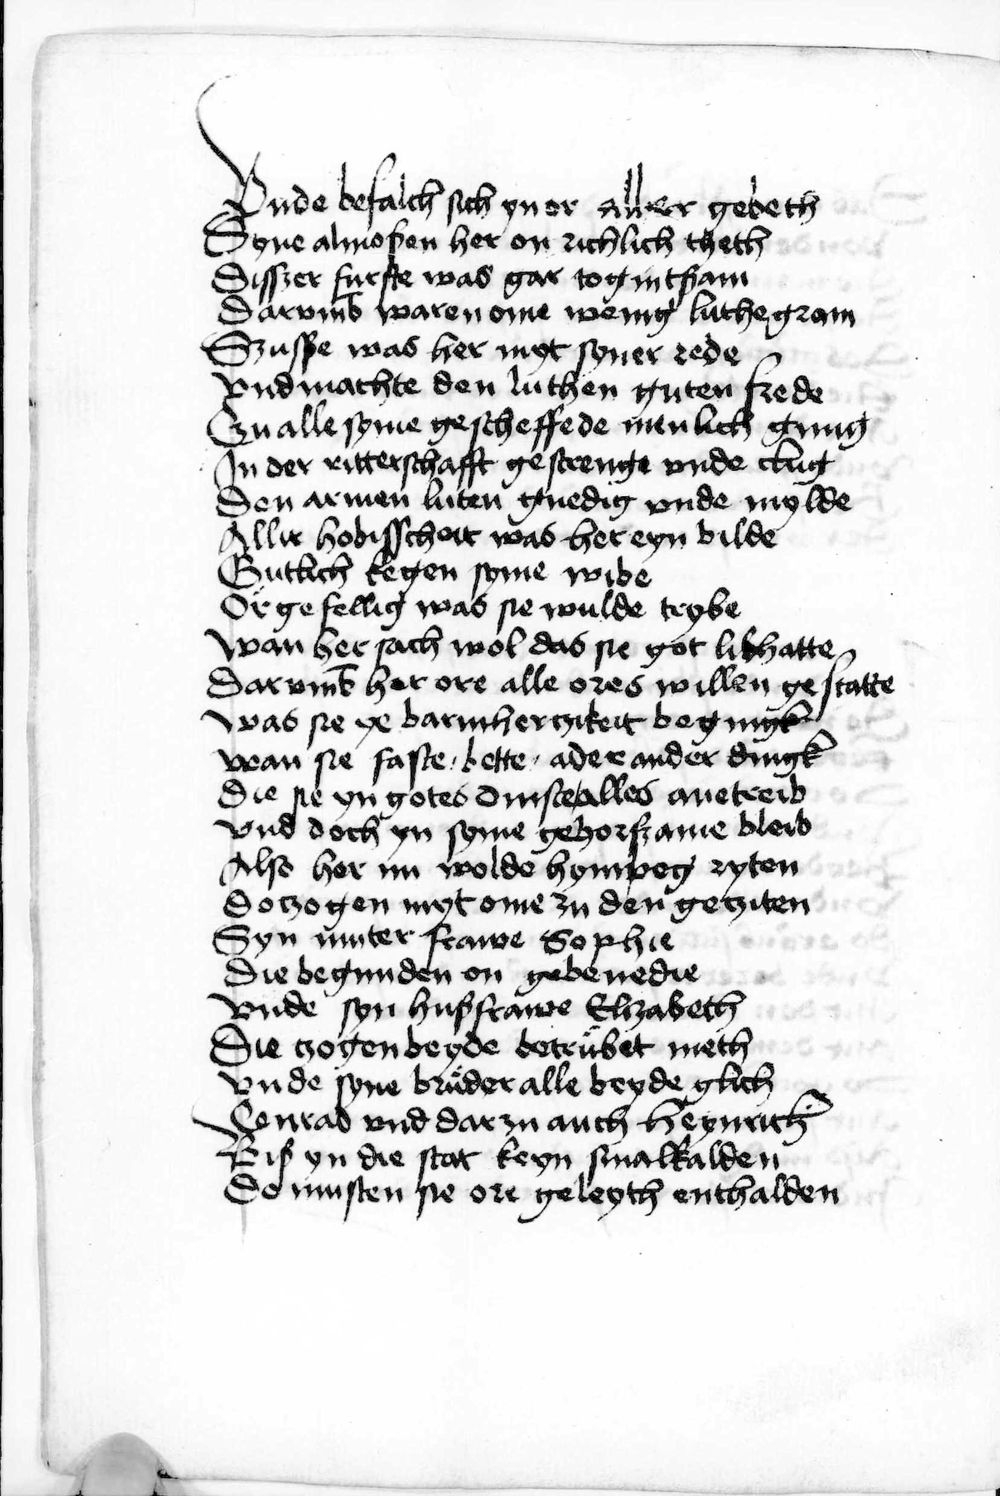 Vnde befalch sich yn or aller gebeth
Syne almoßen her on richlich theth
Disszer furste was gar togintsam
Darvmb waren ome wenig luthe gram
Szusße was her myt syner rede
vnd machte den luthen guten frede
Czu alle syme gescheffede menlich gnug
In der ritterschafft gestrenge vnde clug
Den armen luten gnedig vnde mylde
Allir hobisscheit was her eyn bilde
Gutlich kegen syme wibe
Or gefellig was sie wulde trybe
wan her sach wol das sie got lib hatte
Darvmb her ore alle ores willen gestatte
was sie ye barmherczikeit begingk
wan sie faste, bette, ader ander dingk
Die sie yn gotes dinste alles anetreib
vnd doch yn syme gehorszame bleib
Also her nu wolde hynweg ryten
Do czogen myt ome zu den geziten
Syn muter frawe Sophie
Die begunden on gebenedie
vnde syn hußfrawe Elizabeth
Die czogen beyde betrübet meth
vnde syne brüder alle beyde glich
Conrad vnd darzu auch Heynrich
Biß yn die stat keyn smalkalden
Do musten sie ore geleyth enthalden